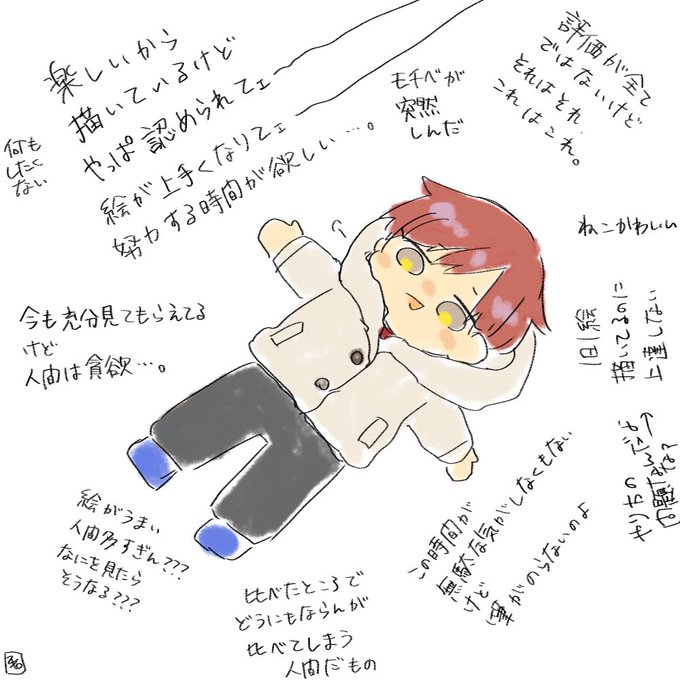 楽しいから
描いているけど
やっぱ認められてェ
絵が上手くなりてェ
努力する時間が欲しい…。
何も
したく
ない
モチベが
突然
しんだ
評価が全て
ではないけど
それはそれ
これはこれ。
ねこかわいい
1日1絵
描いてるのに
上達しない
やり方の
問題なんでしょ
今も充分見てもらえてる
けど
人間は貪欲…。
絵がうまい
人間多すぎん???
なにを見たら
そうなる???
比べたところで
どうにもならんが
比べてしまう
人間だもの
この時間が
無駄な気がしなくもない
けど
筆がのらないのよ